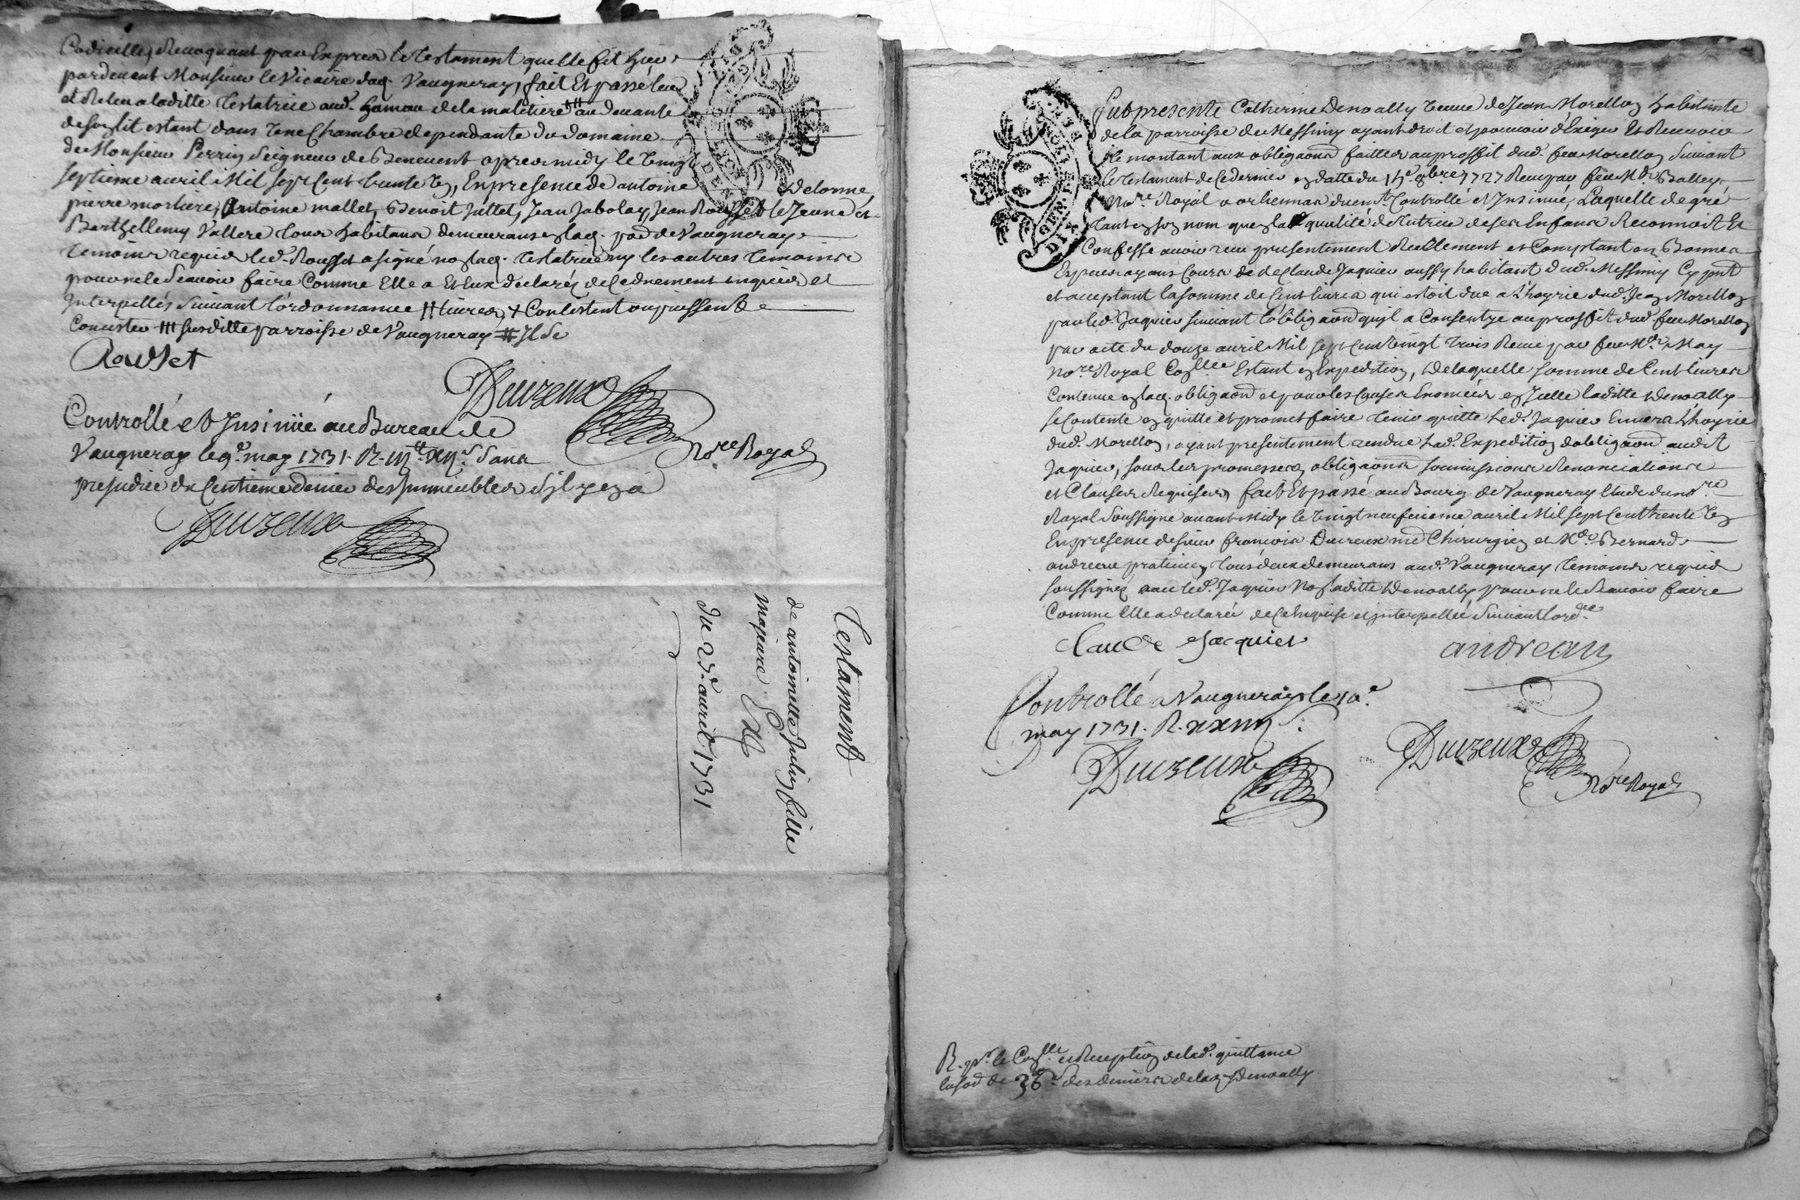 Codicille, Revoquant par Exprer le testament quelle fit hier
pardevant Monsieur le Vicaire dud. Vaugneray, fait Et passé leu
et Releu a laditte testatrice aud. hameau de la maletiere # au devant
de son lit estant dans Une Chambre dependante du domaine
de Monsieur Perrin Seigneur de Benevent apres midy le Vingt
septieme avril Mil sept Cent trente Un, En presence de antoine Delorme,
pierre morliere, Antoine mallet, Benoit Juttet, Jean Jabolay, Jean Rousset le Jeune et
Barthellemy Vallere tous habitans demeurans en lad. par. de Vaugneray
temoins requis led. Rousset a signé non lad. testatrice ny les autres temoins
pour ne le Scavoir faire Comme Elle a Et Eux declaré de ce duement enquis et
Interpellés Suivant l'ordonnance # livres, + Contestent ou pussent
Conester ### susditte parroisse de Vaugneray #
Rousset
Duvzeux
No.re Royal
Controllé et Insinué au Bureau de
Vaugneray le 9e may 1731. R. sans
prejudice du Centieme denier des Immeubles s'il y en a
Duvzeux
Testament
de antoinette Julin fille
majeure
du 25e avril 1731
GEN DE
Fut presente Catherine Denoally Veuve de Jean Morellon habitante
de la parroisse de Messimy ayant droit et pouvoir d'Exiger Et Recevoir
le montant aux obligaons faittes au proffit dud. feu Morellon Suivant
le testament de ce dernier en datte du 14e 9bre 1727 Receu par feu Me Balley
No.re Royal a orlienas duement Controllé et Insinué, Laquelle de gré
tant en son nom que en la qualité de tutrice de ses Enfans Reconnoit Et
Confesse avoir receu presentement Reellement et Comptant en Bonnes
Especes ayans Cours de Sr Claude Jaquier aussy habitant dud. Messimy Cy pnt
et aceptant la somme de Cent livres qui estoit due a L'hoyrie dud. Jean Morellon
par led. Jaquier suivant l'obligaon quil a Consentye au proffit dud. feu Morellon
par acte du douze avril Mil sept Cent vingt trois Receu par feu Me May
No.re Royal Estant en Expedition, De laquelle somme de Cent livres
Contenue en lad. obligaon et pour les causes Enoncées en Icelle laditte Denoally
se Contente en quitte et promet faire tenir quitte led. Jaquier Envers L'hoyrie
dud. Morellon, ayant presentement rendue lad. Expedition d'obligaon audit
Jaquier, sous les promesses, obligaons soumissions Renonciations
et Clauses Requises, fait Et passé au Bourg de Vaugneray Etude du no.re
Royal Soussigné avant Midy le Vingt neufvieme avril Mil sept Cent trente Un
En presence de sieur françois Duvzeux md Chirurgien et Me Bernard
andreau praticien, tous deux demeurans aud. Vaugneray temoins requis
soussignés avec led. Jaquier Non laditte Denoally pour ne le Scavoir faire
Comme Elle a declaré de ce Enquise et interpellée Suivant l'ord.ce
Claude Jacquier
andreau
Controllé a Vaugneray le 10e
may 1731. R.
Duvzeux
Duvzeux
No.re Royal
R. pr. le Con.lle et Reception de lad. quittance
la so.e de 36 s. des deniers de lad. Denoally